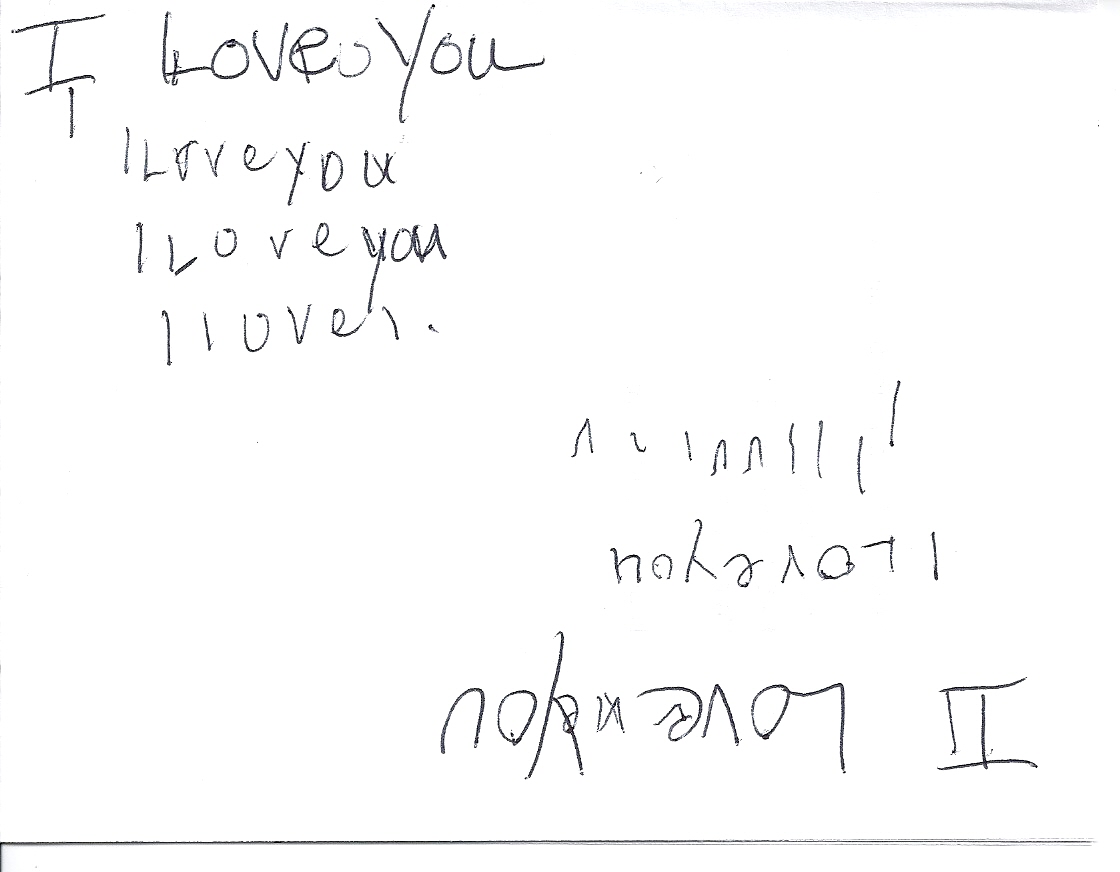 I Loveo You
I Love you
I Love you
I love
I Love you
I Love you